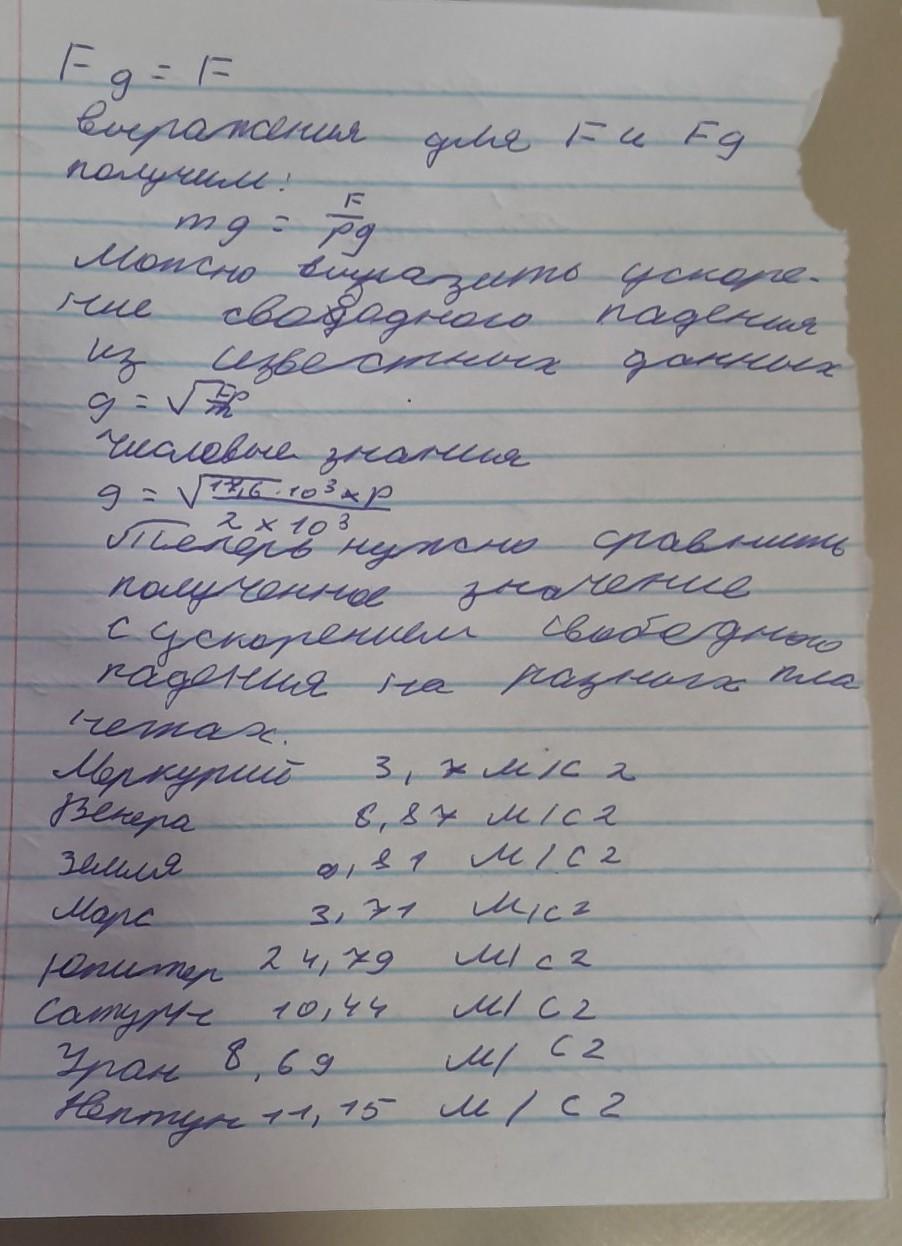 Fg = F
выражения для F и Fg
получим:
mg = F/pg
Можно выразить ускоре-
ние свободного падения
из известных данных
g = √Fp/m
числовые знания
g = √17,6 · 10³ × p
2 × 10³
Теперь нужно сравнить
полученное значение
с ускорением свободного
падения на разных пла
нетах.
Меркурий 3,7 м/с2
Венера 8,87 м/с2
Земля 9,81 м/с2
Марс 3,71 м/с2
Юпитер 24,79 м/с2
Сатурн 10,44 м/с2
Уран 8,69 м/с2
Нептун 11,15 м/с2